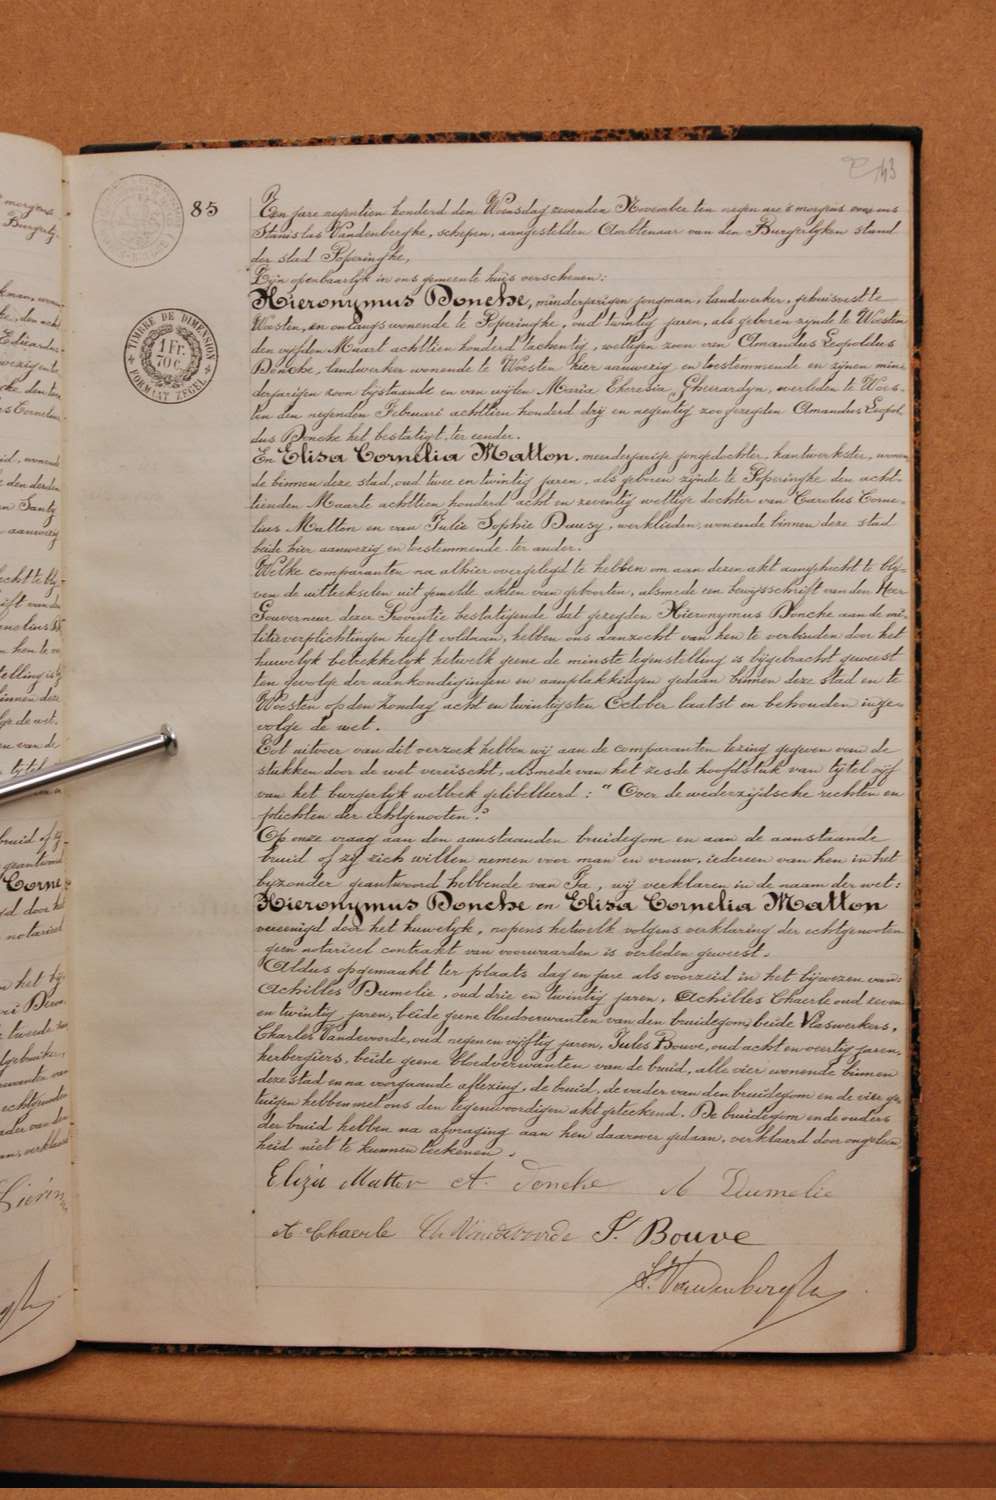 43
85
TIMBRE DE DIMENSION
1 Fr.
70 c.
FORMAAT ZEGEL
Een jare negentien honderd den Woensdag zevenden November ten negen ure 's morgens voor ons
Stanislas Vandenberghe, schepen, aangestelden Ambtenaar van den Burgerlyken stand
der stad Poperinghe,
Zijn openbaarlyk in ons gemeente huis verschenen:
Hieronymus Donche, minderjarigen jongman, landwerker, gehuisvest te
Woesten, en onlangs wonende te Poperinghe, oud twintig jaren, als geboren zynde te Woesten
den vyfden Maart achttien honderd tachentig, wettigen zoon van Amandus Leopoldus
Donche, landwerker wonende te Woesten hier aanwezig en toestemmende en zijnen min-
derjarigen zoon bijstaande en van wijlen Maria Theresia Gheerardyn, overleden te Woes-
ten den negenden Februari achttien honderd drij en negentig zoo gezegden Amandus Leopol
dus Donche het bestatigt, ter eender.
En Elisa Cornelia Matton, meerderjarige jongedochter, kantwerkster, wonen
de binnen deze stad, oud twee en twintig jaren, als geboren zijnde te Poperinghe den acht-
tienden Maarte achttien honderd acht en zeventig wettige dochter van Carolus Corne-
lius Matton en van Julie Sophie Dausy, werklieden, wonende binnen deze stad
beide hier aanwezig en toestemmende ter ander.
Welke comparanten na alhier overgelegd te hebben om aan dezen akt aangehecht te bly-
ven de uittreksels uit gemelde akten van geboorten, alsmede een bewijsschrift van den Heer
Gouverneur dezer Provintie bestatigende dat gezegden Hieronymus Donche aan de mi-
litieverplichtingen heeft voldaan, hebben ons aanzocht van hen te verbinden door het
huwelyk betrekkelyk hetwelk geene de minste tegenstelling is bijgebracht geweest
ten gevolge der aankondigingen en aanplakkingen gedaan binnen deze stad en te
Woesten op den Zondag acht en twintigsten October laatst en behouden inge-
volge de wet.
Tot uitvoer van dit verzoek hebben wij aan de comparanten lezing gegeven van de
stukken door de wet vereischt, alsmede van het zesde hoofdstuk van tytel vijf
van het burgerlyk wetboek gelibelleerd: " Over de wederzijdsche rechten en
plichten der echtgenooten."
Op onze vraag aan den aanstaanden bruidegom en aan de aanstaande
bruid of zij zich willen nemen voor man en vrouw, iedereen van hen in het
byzonder geantwoord hebbende van Ja, wij verklaren in de naam der wet:
Hieronymus Donche en Elisa Cornelia Matton
vereenigd door het huwelyk, nopens hetwelk volgens verklaring der echtgenooten
geen notarieel contrakt van voorwaarden is verleden geweest.
Aldus opgemaakt ter plaats dag en jare als voorzeid in het bijwezen van:
Achilles Dumelie, oud drie en twintig jaren, Achilles Chaerle oud zeven
en twintig jaren, beide geene bloedverwanten van den bruidegom, beide Vlaswerkers,
Charles Vandevoorde, oud negen en vyftig jaren, Jules Bouve, oud acht en veertig jaren,
herbergiers, beide geene bloedverwanten van de bruid, alle vier wonende binnen
deze stad en na voorgaande aflezing, de bruid, de vader van den bruidegom en de vier ge-
tuigen hebben met ons den tegenwoordigen akt geteekend. De bruidegom en de ouders
der bruid hebben na afvraging aan hen daarover gedaan, verklaard door ongeleerd
heid niet te kunnen teekenen.
Eliza Matton A. Donche A Dumelie
A Chaerle Ch Vandevoorde J. Bouve
St. Vandenberghe